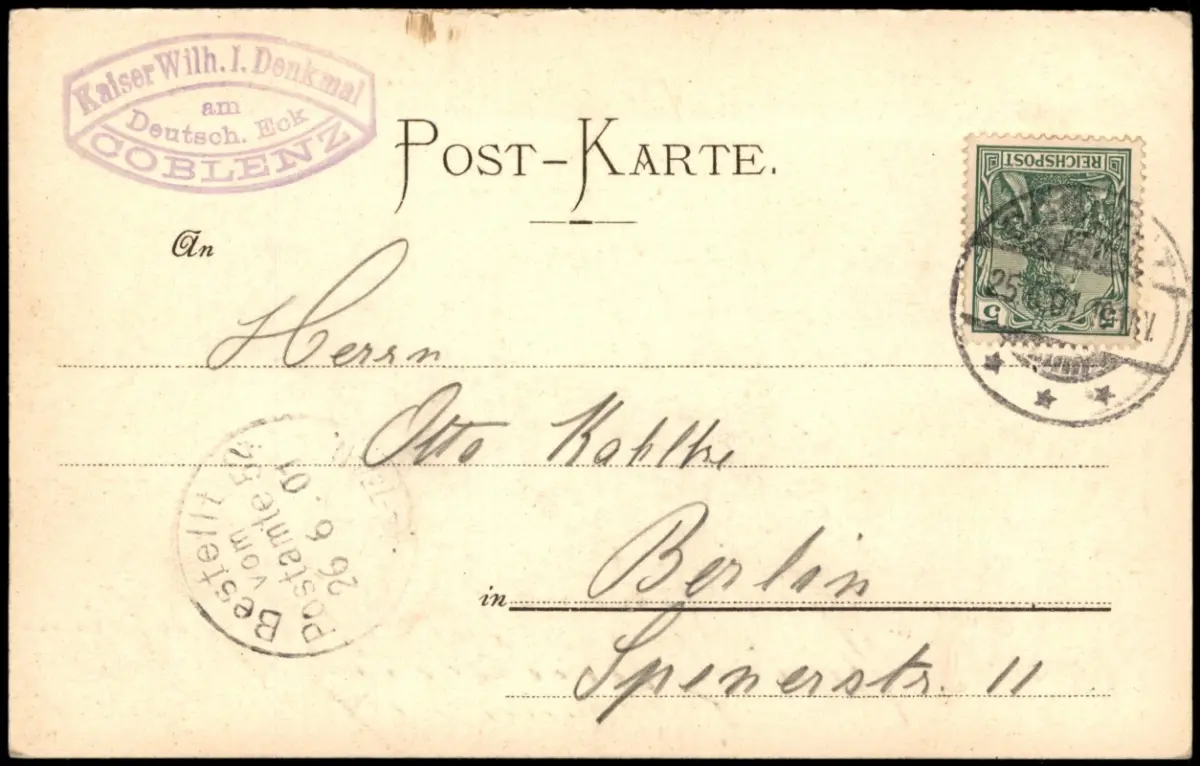 Kaiser Wilh. I. Denkmal
am
Deutsch. Eck
COBLENZ
POST-KARTE.
REICHSPOST
5 5
An
Herrn
Otto
Berlin
in
11
Bestellt
vom
Postamte
26 6. 01